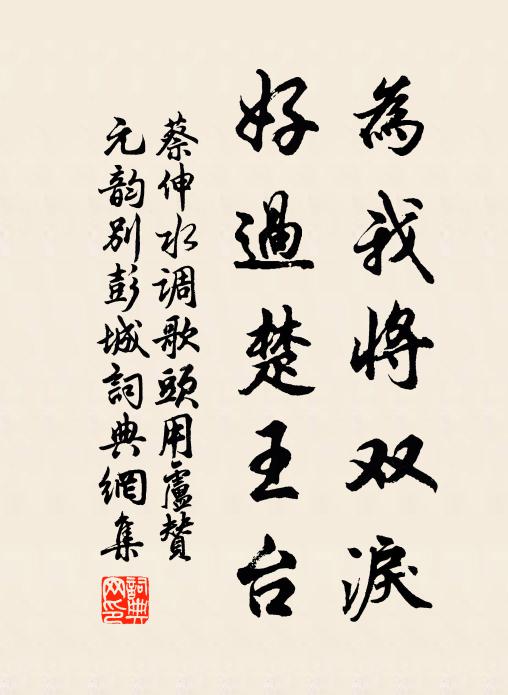 為我将双淚
好過楚王台
蔡伸水调歌頭用盧贊
元韵别彭城詞典網集
詞典網印